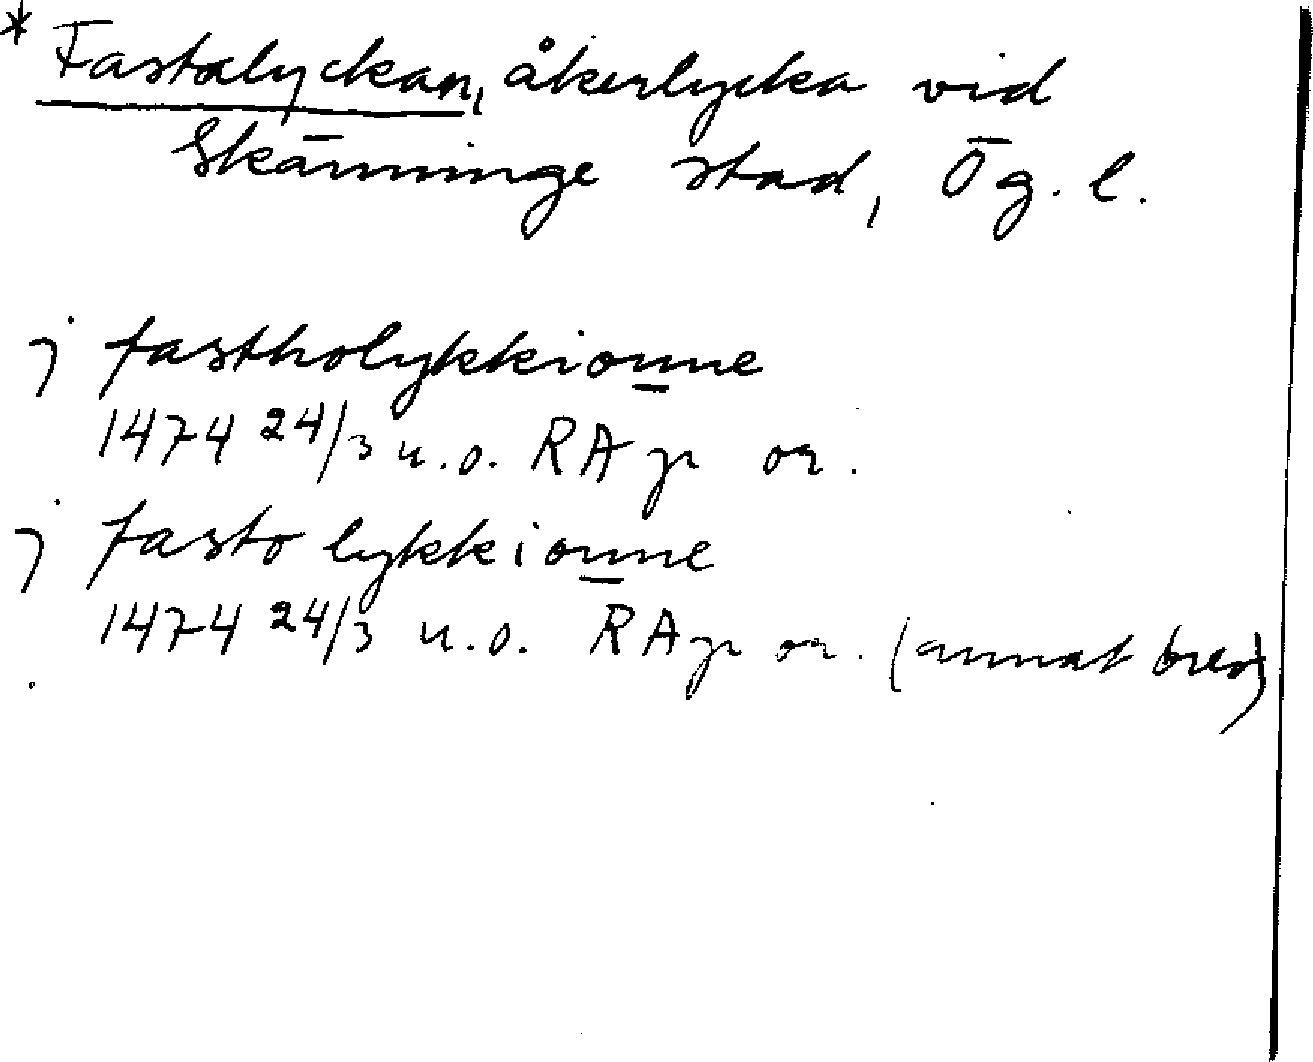 * Fastalyckan, åkerlycka vid
Skänninge stad, Ög. l.
j fastholykkionne
1474 24/3 u.o. RAp or.
j fasto lykkionne
1474 24/3 u.o. RAp or. (annat brev)